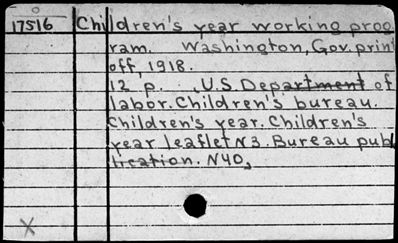 17516 Children's year working prog
ram. Washington, Gov. prin
off, 1918.
12 p. , U.S. Department of
labor. Children's bureau.
Children's year. Children's
year leaflet N3. Bureau pub
lication. N40,
X